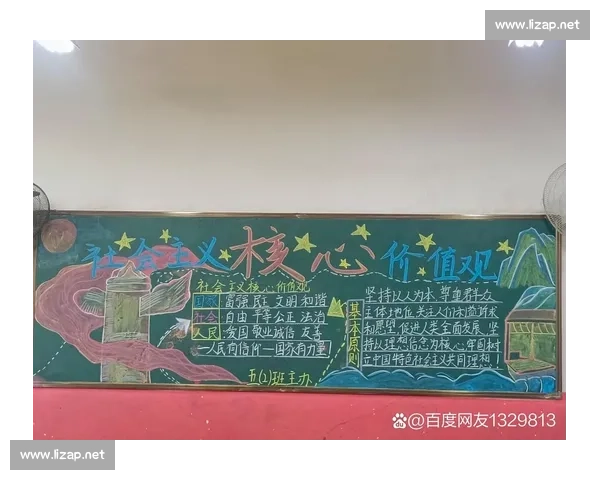 www.lizap.net
社会主义核心价值观
社会主义核心价值观
国家 富强 民主 文明 和谐
社会 自由 平等 公正 法治
人民 爱国 敬业 诚信 友善
人民有信仰 国家有力量
五(2)班主办
基本原则
坚持以人为本,尊重群众
主体地位,关注人们利益诉求
和愿望,促进人类全面发展、坚
持以理想信念为核心,牢固树
立中国特色社会主义共同理想!
@百度网友1329813
www.lizap.net